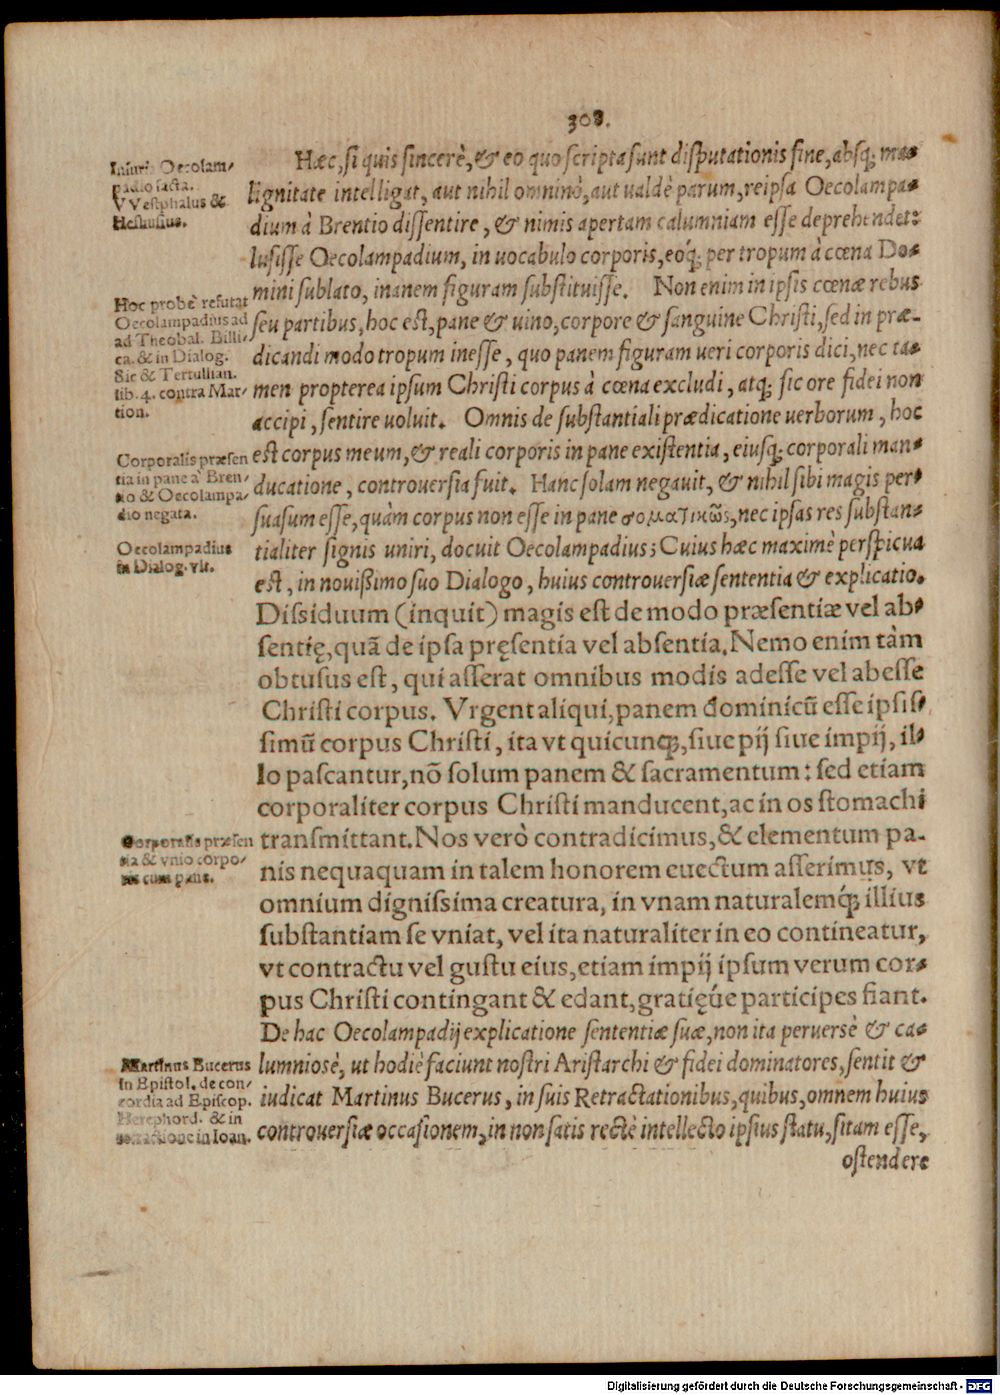 308.
Hæc, si quis sincerè, & eo quo scripta sunt disputationis fine, absq; ma-
lignitate intelligat, aut nihil omninò, aut ualdè parum, reipsa Oecolampa-
dium à Brentio dissentire, & nimis apertam calumniam esse deprehendet:
lusisse Oecolampadium, in uocabulo corporis, eoq́; per tropum à cœna Do-
mini sublato, inanem figuram substituisse. Non enim in ipsis cœnæ rebus
seu partibus, hoc est, pane & uino, corpore & sanguine Christi, sed in præ-
dicandi modo tropum inesse, quo panem figuram ueri corporis dici, nec ta-
men propterea ipsum Christi corpus à cœna excludi, atq; sic ore fidei non
accipi, sentire uoluit. Omnis de substantiali prædicatione uerborum, hoc
est corpus meum, & reali corporis in pane existentia, eiusq; corporali man-
ducatione, controuersia fuit. Hanc solam negauit, & nihil sibi magis per-
suasum esse, quàm corpus non esse in pane σοματικῶς, nec ipsas res substan-
tialiter signis uniri, docuit Oecolampadius; Cuius hæc maximè perspicua
est, in nouißimo suo Dialogo, huius controuersiæ sententia & explicatio.
Dissiduum (inquit) magis est de modo præsentiæ vel ab-
sentię, quã de ipsa pręsentia vel absentia. Nemo enim tàm
obtusus est, qui asserat omnibus modis adesse vel abesse
Christi corpus. Vrgent aliqui, panem dominicũ esse ipsis-
simũ corpus Christi, ita vt quicunq;, siue pij siue impij, il-
lo pascantur, nõ solum panem & sacramentum: sed etiam
corporaliter corpus Christi manducent, ac in os stomachi
transmittant. Nos verò contradicimus, & elementum pa-
nis nequaquam in talem honorem euectum asserimus, vt
omnium dignissima creatura, in vnam naturalemq́; illius
substantiam se vniat, vel ita naturaliter in eo contineatur,
vt contractu vel gustu eius, etiam impij ipsum verum cor-
pus Christi contingant & edant, gratięq́ue participes fiant.
De hac Oecolampadij explicatione sententiæ suæ, non ita peruersè & ca-
lumniosè, ut hodiè faciunt nostri Aristarchi & fidei dominatores, sentit &
iudicat Martinus Bucerus, in suis Retractationibus, quibus, omnem huius
controuersiæ occasionem, in non satis rectè intellecto ipsius statu, sitam esse,
ostendere
Iniuria Oecolam-
padio facta.
VVestphalus &
Heshusius.
Hoc probè refutat
Oecolampadius ad
ad Theobal. Billi-
ca. & in Dialog.
Sic & Tertullian.
lib. 4. contra Mar-
tion.
Corporalis præsen
tia in pane à Bren-
tio & Oecolampa-
dio negata.
Oecolampadius
in Dialog. vlt.
Corporalis præsen
tia & vnio corpo-
ris cum pane.
Martinus Bucerus
in Epistol. de con-
cordia ad Episcop.
Herephord. & in
in Ioan.
Digitalisierung gefördert durch die Deutsche Forschungsgemeinschaft - DFG